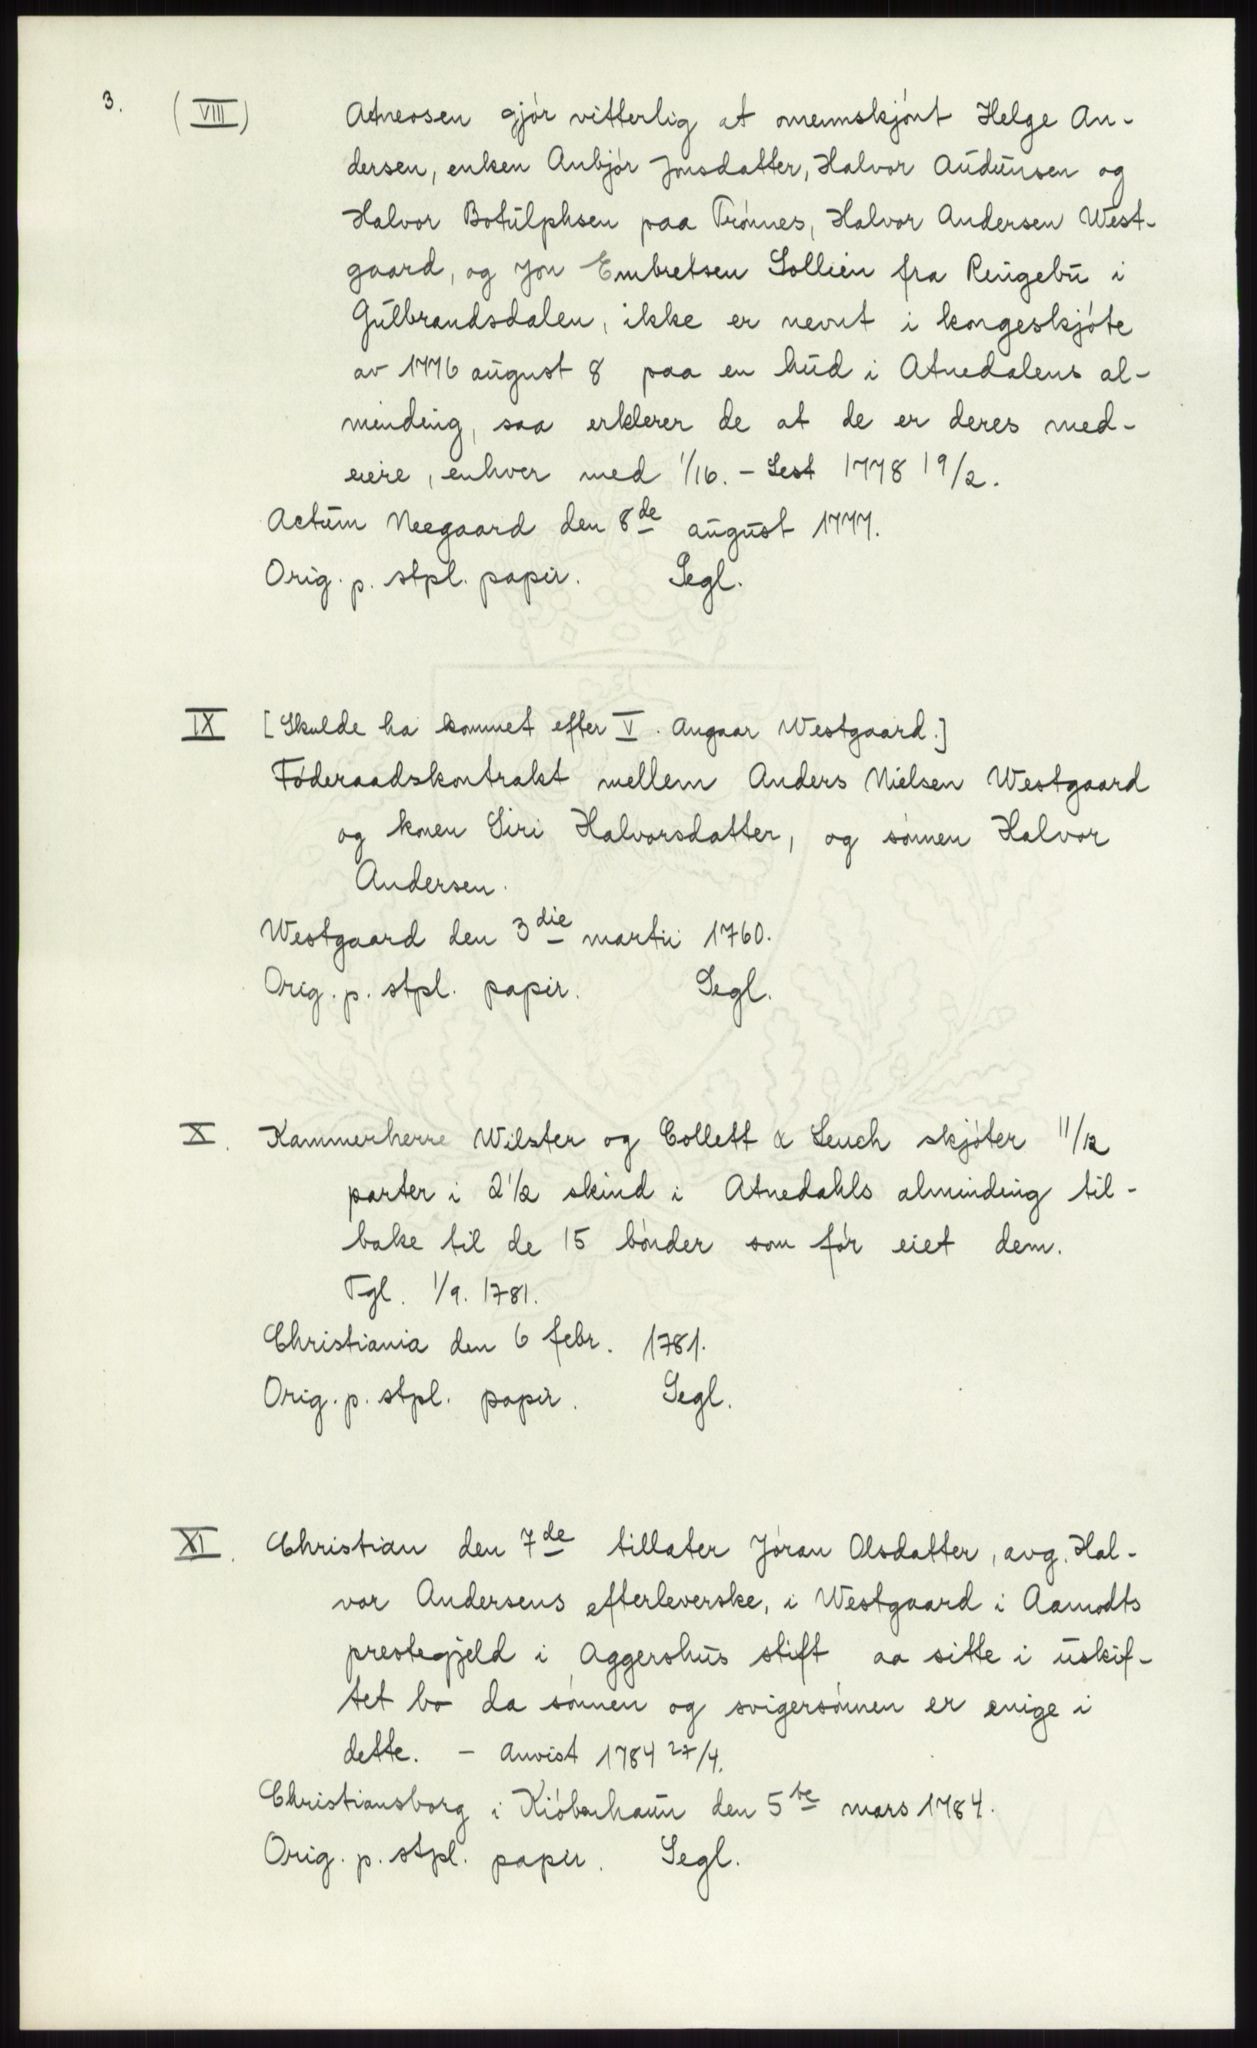 3. (VIII) Atneosen gjør vitterlig at omennskjønt Helge An-
dersen, enken Anbjør Jonsdatter, Halvor Audunsen og
Halvor Botulphsen paa Trønnes, Halvor Andersen West-
gaard, og Jon Embretsen Sollien fra Ringebu i
Gulbrandsdalen, ikke er nevnt i kongeskjøte
av 1776 august 8 paa en hud i Atnedalens al-
minding, saa erklerer de at de er deres med-
eiere, enhver med 1/16. - Lest 1778 19/2.
Actum Neegaard den 8de august 1777.
Orig. p. stpl. papir. Segl.
IX [Skulde ha kommet efter V. Angaar Westgaard.]
Føderaadskontrakt mellem Anders Nielsen Westgaard
og konen Siri Halvorsdatter, og sønnen Halvor
Andersen.
Westgaard den 3die martii 1760.
Orig. p. stpl. papir. Segl.
X. Kammerherre Wilster og Collett & Leuch skjøter 11/12
parter i 2 1/2 skind i Atnedahls alminding til-
bake til de 15 bønder som før eiet dem.
Tgl. 1/9. 1781.
Christiania den 6 febr. 1781.
Orig. p. stpl. papir. Segl.
XI. Christian den 7de tillater Jøran Olsdatter, avg. Hal-
vor Andersens efterleverske, i Westgaard i Aamodts
prestegjeld i Aggershus stift aa sitte i uskif-
tet bo da sønnen og svigersønnen er enige i
dette. - Anvist 1784 27/4.
Christiansborg i Kiøbenhaun den 5te mars 1784.
Orig. p. stpl. papir. Segl.